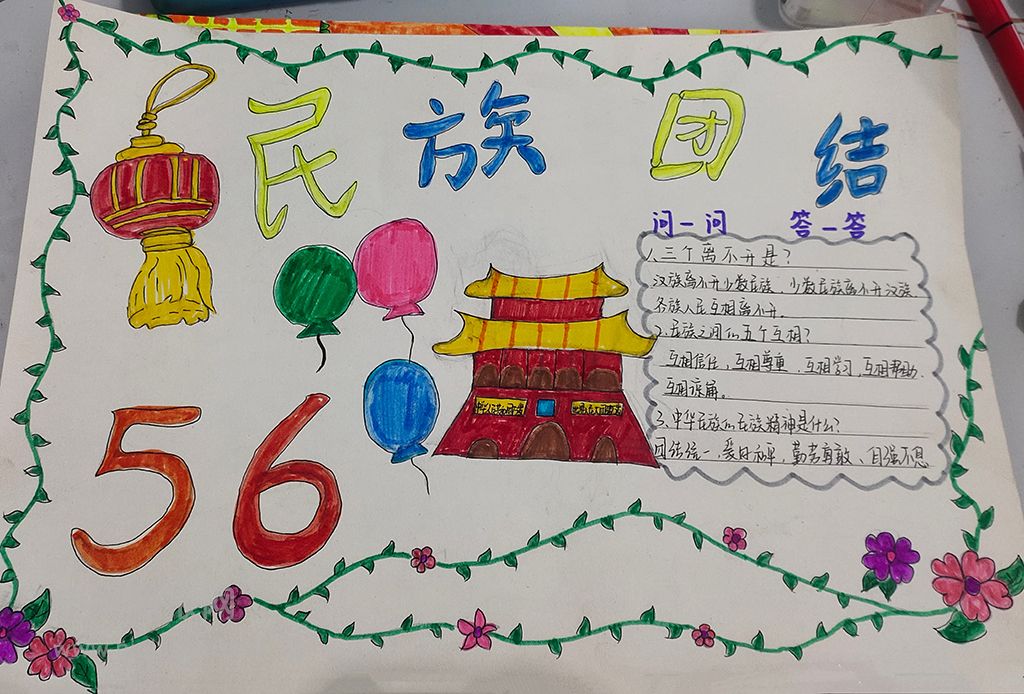 民族团结
问一问 答一答
1、三个离不开是?
汉族离不开少数民族、少数民族离不开汉族、
各族人民互相离不开。
2、民族之间的五个互相?
互相信任、互相尊重、互相学习、互相帮助、
互相谅解。
3、中华民族的民族精神是什么?
团结统一、爱好和平、勤劳勇敢、自强不息
56